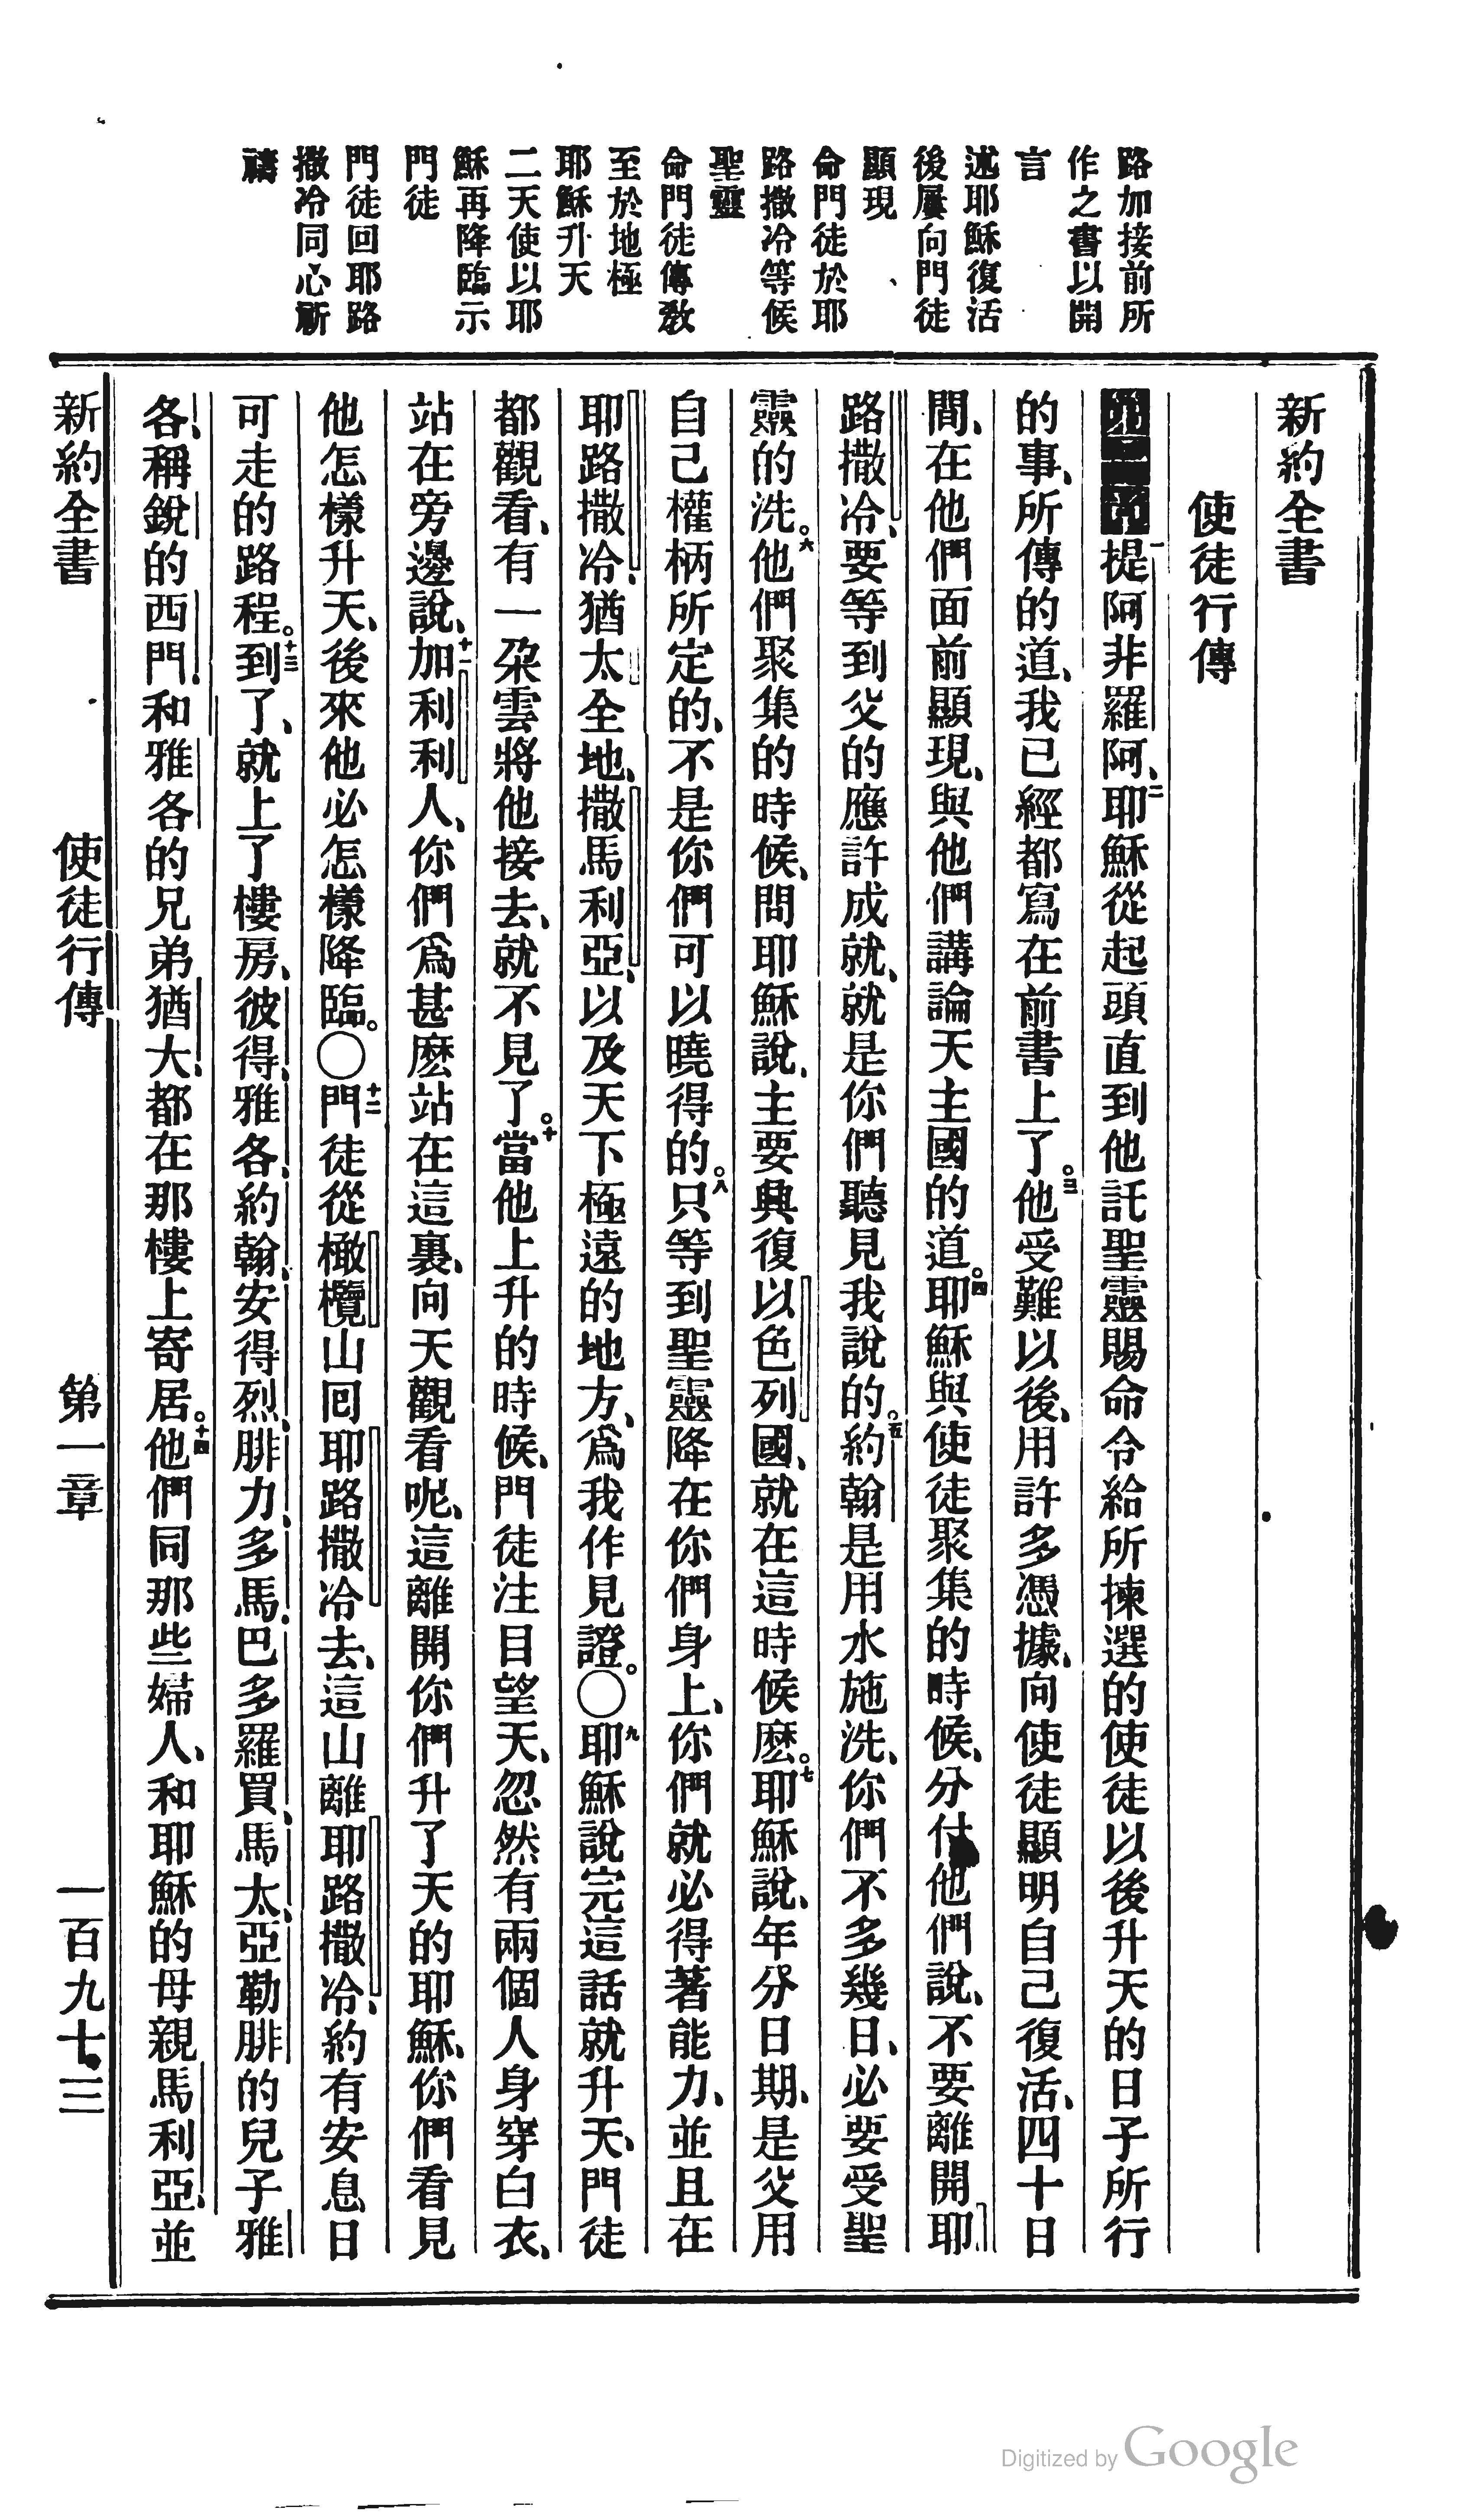 路加接前所
作之書以開
言
述耶穌復活
後屢向門徒
顯現
命門徒於耶
路撒冷等候
聖靈
命門徒傳教
至於地極
耶穌升天
二天使以耶
穌再降臨示
門徒
門徒回耶路
撒冷同心祈
禱
新約全書
使徒行傳
第一章一提阿非羅阿、二耶穌從起頭直到他託聖靈賜命令給所揀選的使徒以後升天的日子所行
的事、所傳的道、我已經都寫在前書上了。三他受難以後、用許多憑據、向使徒顯明自己復活、四十日
間、在他們面前顯現、與他們講論天主國的道。四耶穌與使徒聚集的時候、分付他們說、不要離開耶
路撒冷、要等到父的應許成就、就是你們聽見我說的。五約翰是用水施洗、你們不多幾日、必要受聖
靈的洗。六他們聚集的時候、問耶穌說、主要興復以色列國、就在這時候麽。七耶穌說、年分日期、是父用
自己權柄所定的、不是你們可以曉得的。八只等到聖靈降在你們身上、你們就必得著能力、並且在
耶路撒冷、猶太全地、撒馬利亞、以及天下極遠的地方、爲我作見證。〇九耶穌說完這話就升天、門徒
都觀看、有一朶雲將他接去、就不見了。十當他上升的時候、門徒注目望天、忽然有兩個人身穿白衣、
站在旁邊說、十一加利利人、你們爲甚麽站在這裏、向天觀看呢、這離開你們升了天的耶穌、你們看見
他怎樣升天、後來他必怎樣降臨。〇十二門徒從橄欖山回耶路撒冷去、這山離耶路撒冷、約有安息日
可走的路程。十三到了、就上了樓房、彼得、雅各、約翰、安得烈、腓力、多馬、巴多羅買、馬太、亞勒腓的兒子雅
各、稱銳的西門、和雅各的兄弟猶大、都在那樓上寄居。十四他們同那些婦人、和耶穌的母親馬利亞、並
新約全書 使徒行傳 第一章 一百九十三
Digitized by Google